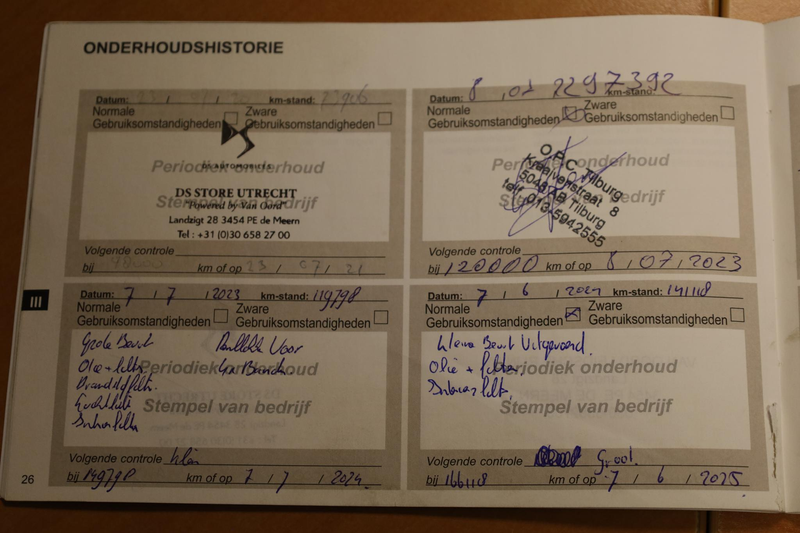 ONDERHOUDSHISTORIE
Datum: / / km-stand:
Normale Gebruiksomstandigheden Zware Gebruiksomstandigheden
DS AUTOMOBILES
Periodiek onderhoud
DS STORE UTRECHT
"Powered by Van Oord"
Stempel van bedrijf
Landzigt 28 3454 PE de Meern
Tel : +31 (0)30 658 27 00
Volgende controle
bij km of op 23 / 07 / 21
Datum: 8 km-stand: 97392
Normale Gebruiksomstandigheden Zware Gebruiksomstandigheden
Periodiek onderhoud
Stempel van bedrijf
O.R.C. Tilburg
Kraaivenstraat 8
Tilburg
telf. 013-5942555
Volgende controle
bij 120000 km of op 8 / 07 / 2023
III
Datum: 7 / 7 / 2023 km-stand: 119798
Normale Gebruiksomstandigheden Zware Gebruiksomstandigheden
Grote Beurt Voor
Olie + filter
Periodiek onderhoud
Stempel van bedrijf
Volgende controle klein
bij 149798 km of op 7 / 7 / 2024
Datum: 7 / 6 / 2024 km-stand: 141118
Normale Gebruiksomstandigheden Zware Gebruiksomstandigheden
Kleine Beurt Uitgevoerd.
Olie + filter
Periodiek onderhoud
Stempel van bedrijf
Volgende controle Groot.
bij 166118 km of op 7 / 6 / 2025
26